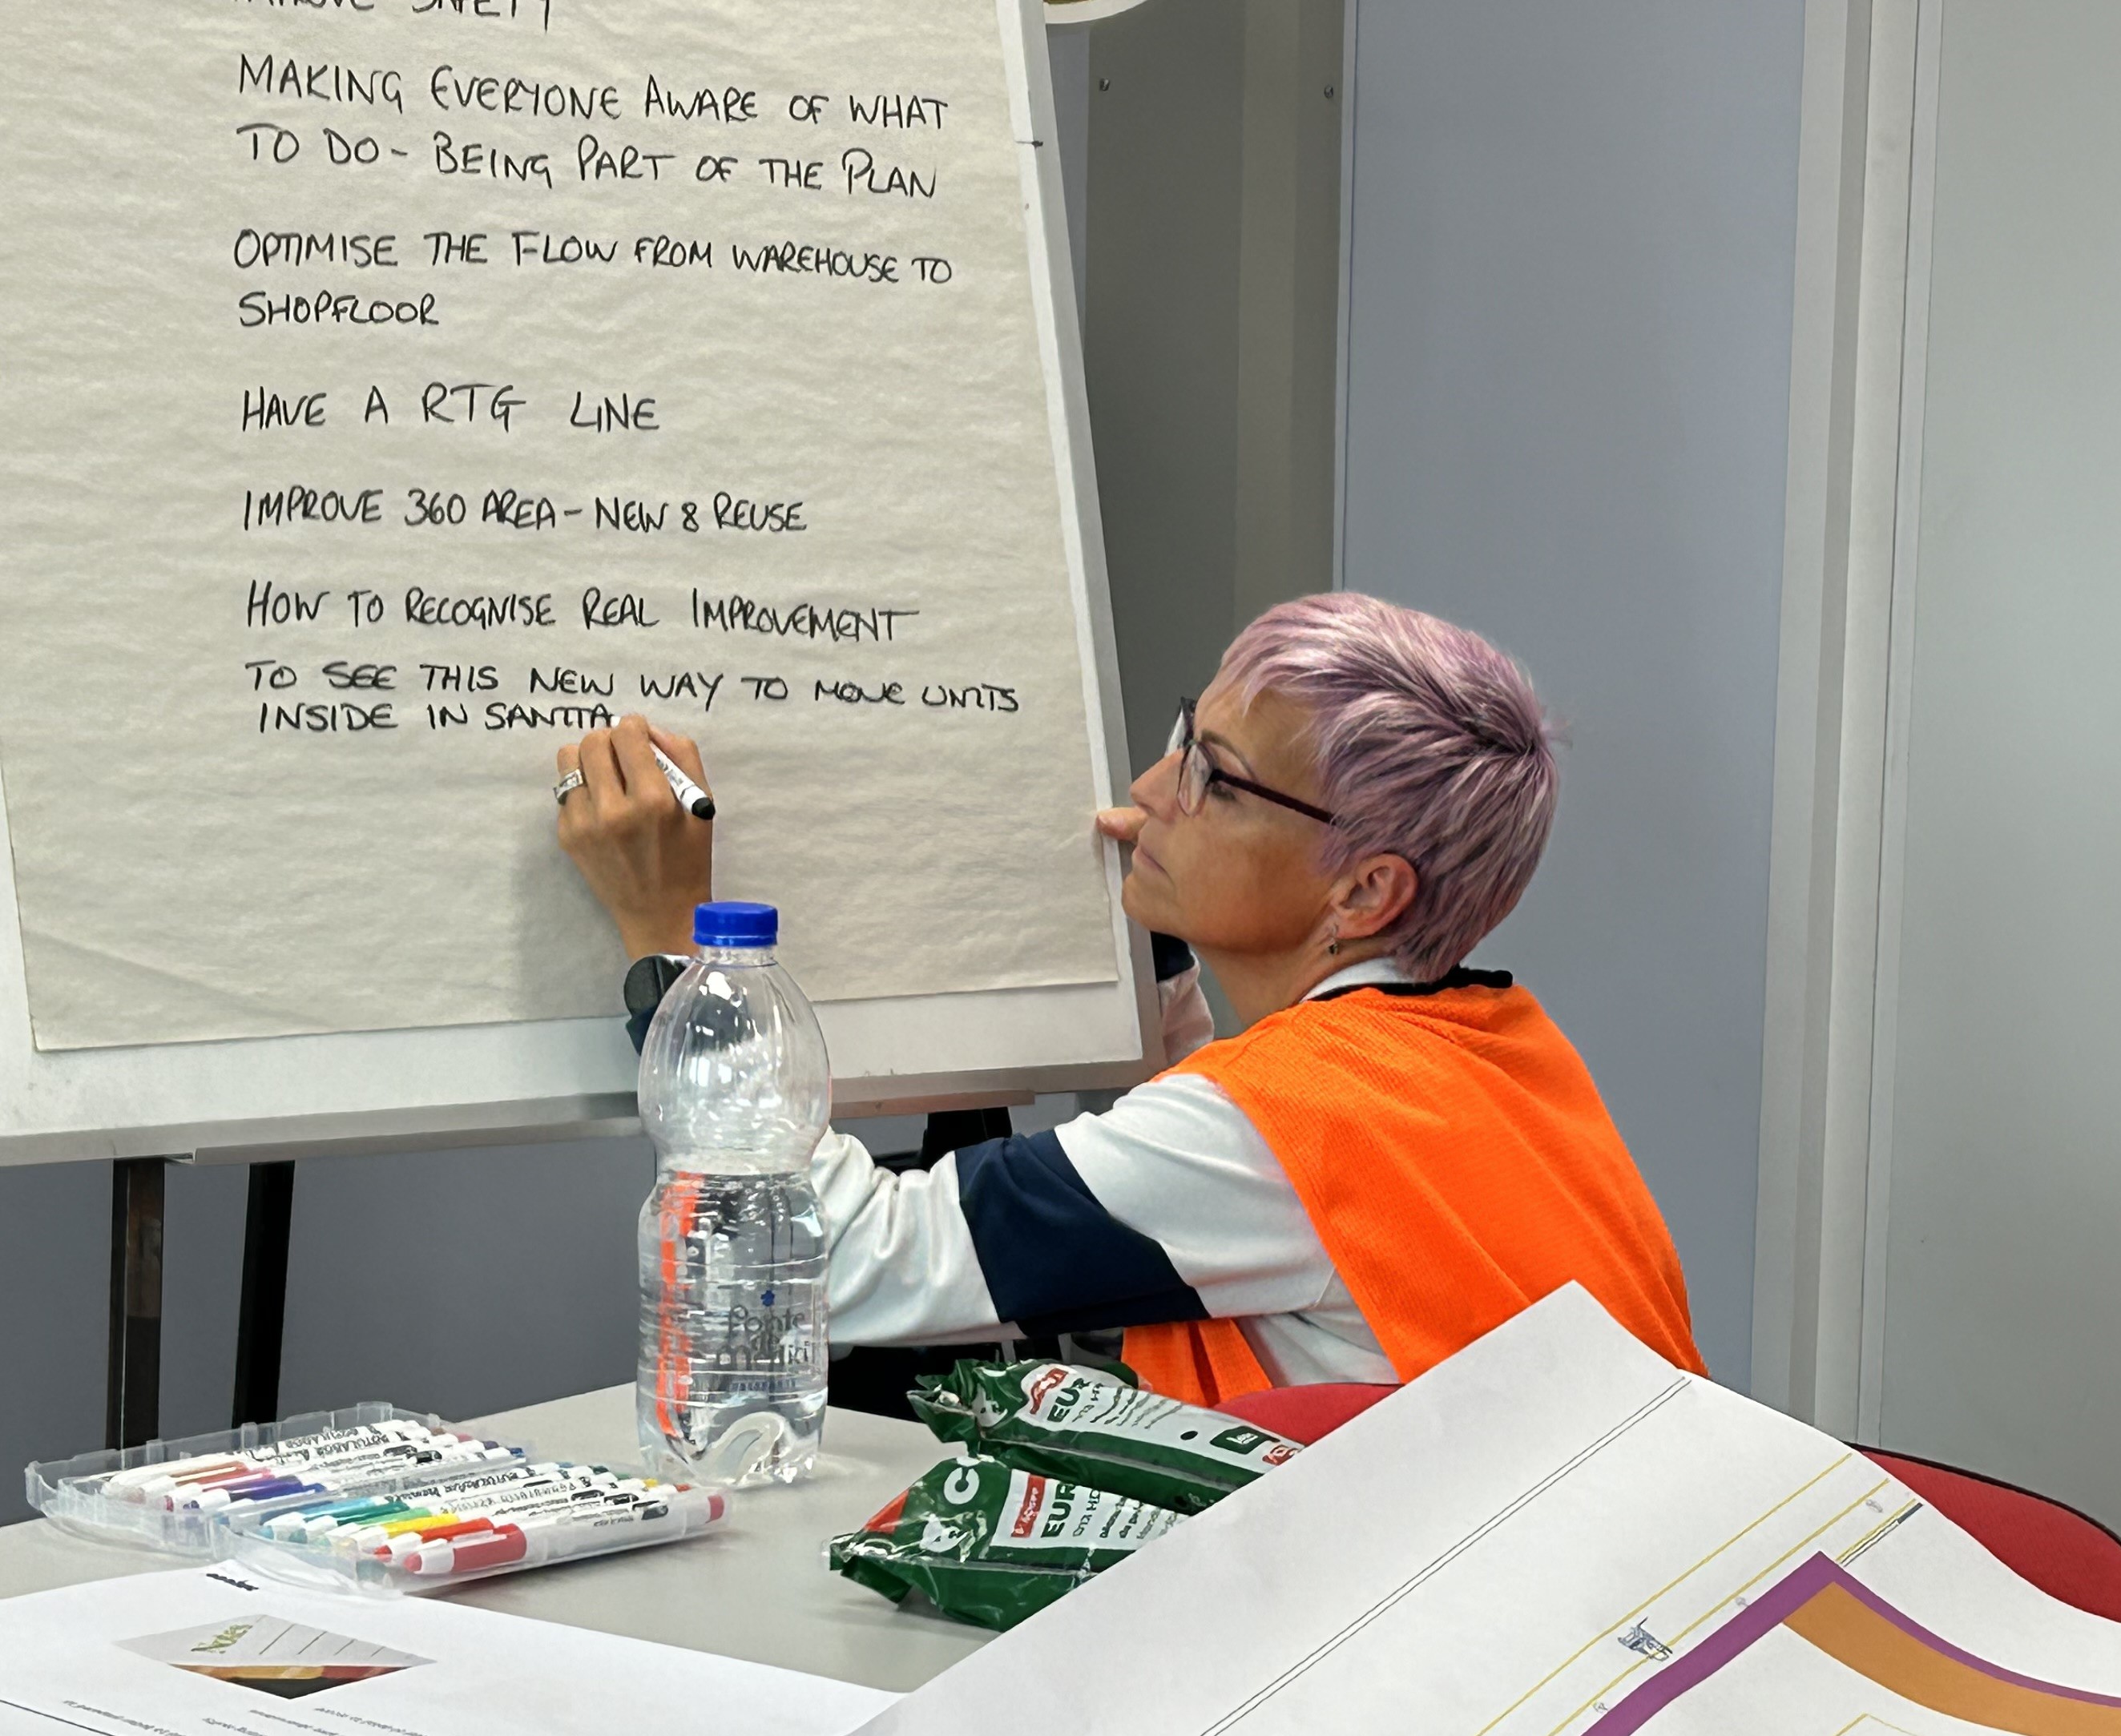 SAFETY
MAKING EVERYONE AWARE OF WHAT
TO DO - BEING PART OF THE PLAN
OPTIMISE THE FLOW FROM WAREHOUSE TO
SHOPFLOOR
HAVE A RTG LINE
IMPROVE 360 AREA - NEW & REUSE
HOW TO RECOGNISE REAL IMPROVEMENT
TO SEE THIS NEW WAY TO MOVE UNITS
INSIDE IN SANTTA
Notes